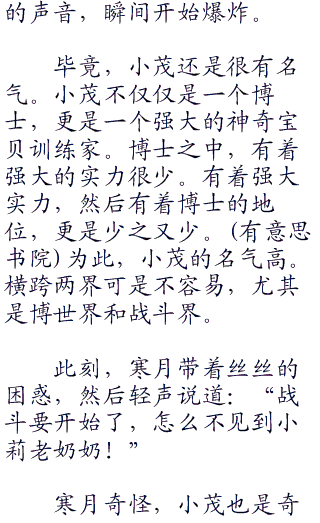 的声音，瞬间开始爆炸。
毕竟，小茂还是很有名
气。小茂不仅仅是一个博
士，更是一个强大的神奇宝
贝训练家。博士之中，有着
强大的实力很少。有着强大
实力，然后有着博士的地
位，更是少之又少。(有意思
书院)为此，小茂的名气高。
横跨两界可是不容易，尤其
是博世界和战斗界。
此刻，寒月带着丝丝的
困惑，然后轻声说道：“战
斗要开始了，怎么不见到小
莉老奶奶！”
寒月奇怪，小茂也是奇